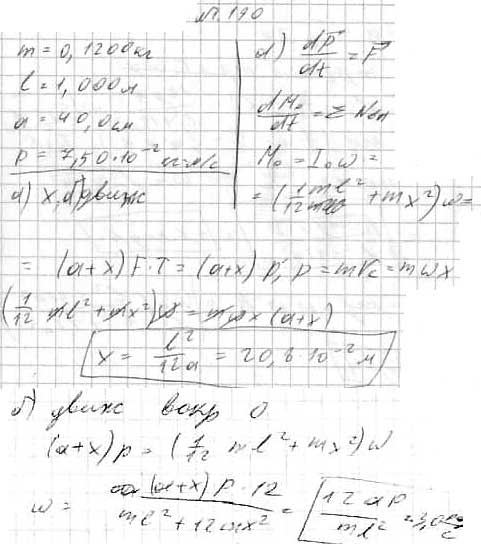 № 190
m = 0,1200 кг
l = 1,000 м
a = 40,0 см
p = 7,50·10⁻² кг·м/с
а) x, движ
а) dp⃗/dt = F⃗
dM₀/dt = Σ Nвн
M₀ = I₀ω =
= (1/12 ml² + mx²) ω =
= (a+x) F·T = (a+x) p; p = mVc = mωx
(1/12 ml² + mx²) ω = mωx (a+x)
x = l²/12a = 20,8·10⁻² м
б) движ вокр O
(a+x) p = (1/12 ml² + mx²) ω
ω = (a+x) p·12 / ml² + 12mx² = 12ap / ml² = 3,0 рад/с